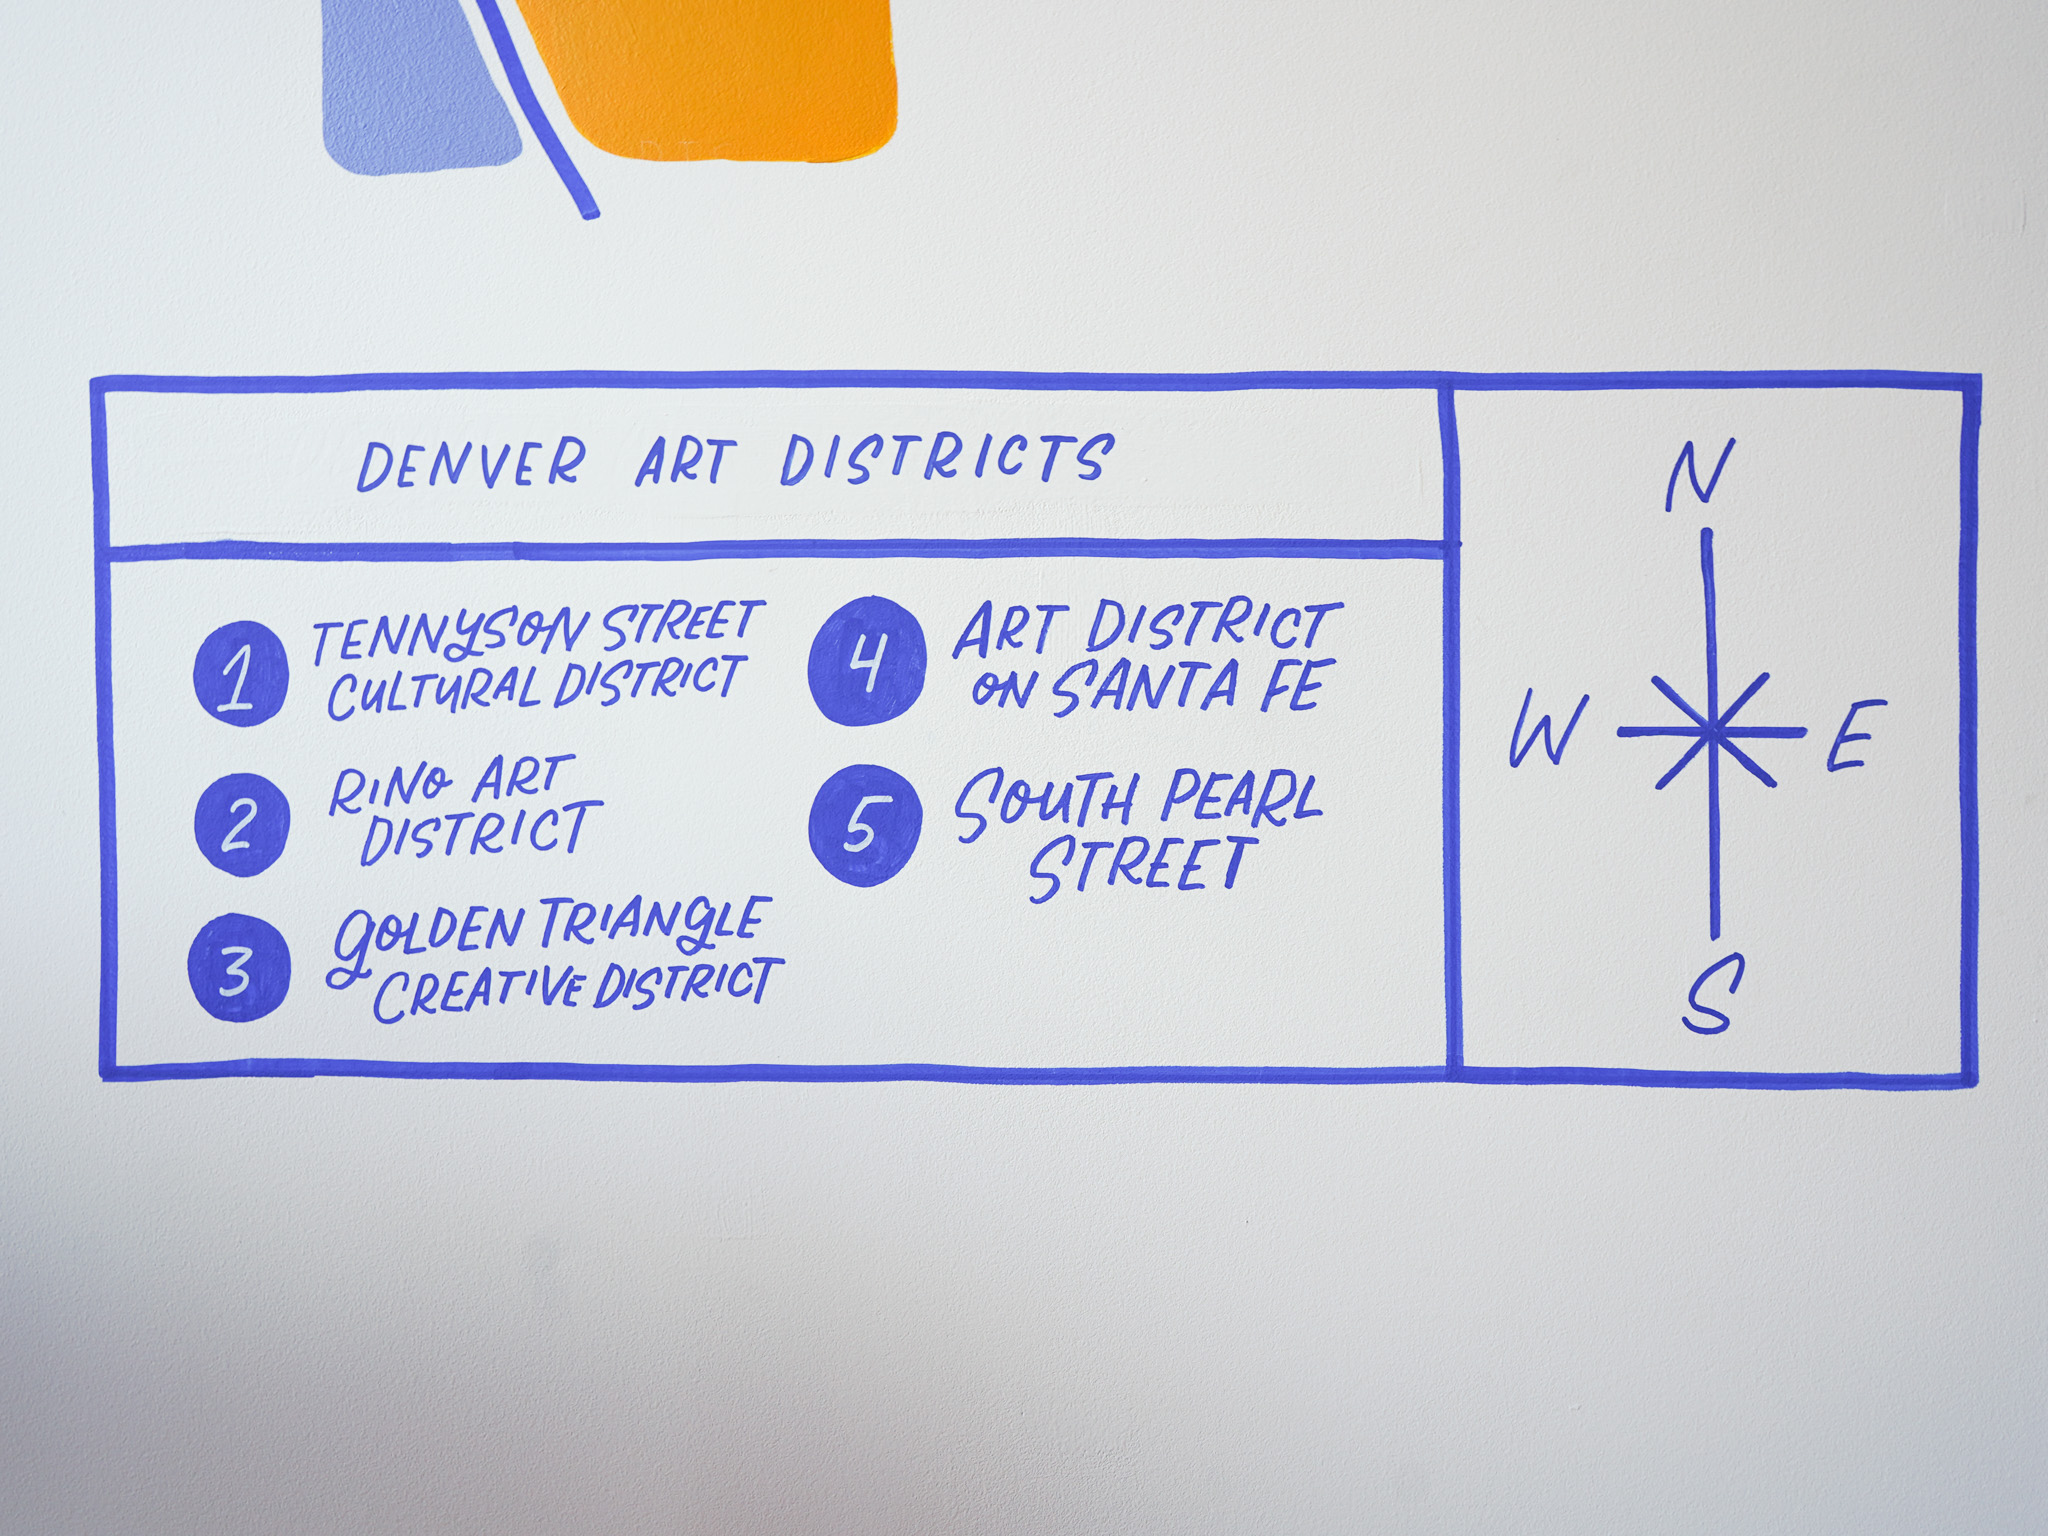 DENVER ART DISTRICTS
1 TENNYSON STREET
CULTURAL DISTRICT
2 RINO ART
DISTRICT
3 GOLDEN TRIANGLE
CREATIVE DISTRICT
4 ART DISTRICT
ON SANTA FE
5 SOUTH PEARL
STREET
N
W E
S